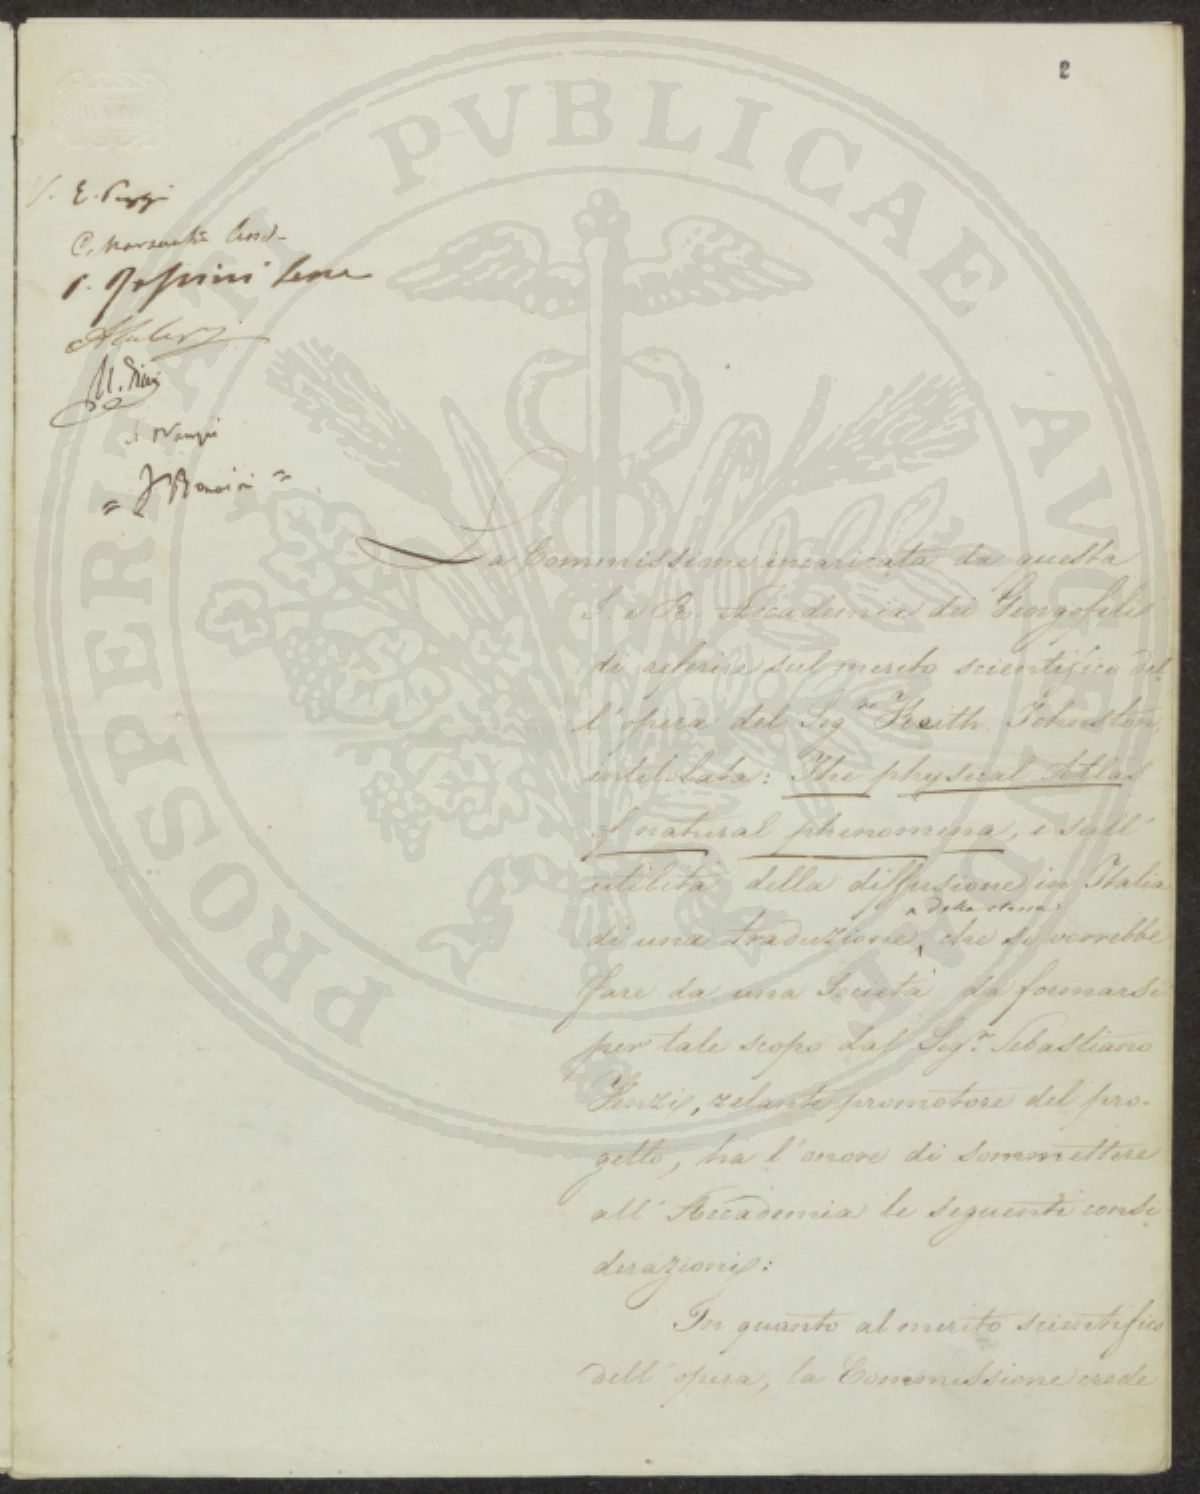 2
E. Poggi
M. Dini
La Commissione incaricata da questa
I. e R. Accademia dei Georgofili
di referire sul merito scientifico del
l'opera del Sig.re Keith Johnston,
intitolata: The physical Atlas
of natural phenomena, e sull'
utilità della diffusione in Italia
di una traduzione, della stessa che si vorrebbe
fare da una Società da formarsi
per tale scopo dal Sig.r Sebastiano
Fenzi, zelante promotore del pro-
getto, ha l'onore di sommettere
all'Accademia le seguenti consi
derazioni:
In quanto al merito scientifico
dell'opera, la Commissione crede
PROSPERITATI PVBLICAE AVGENDAE